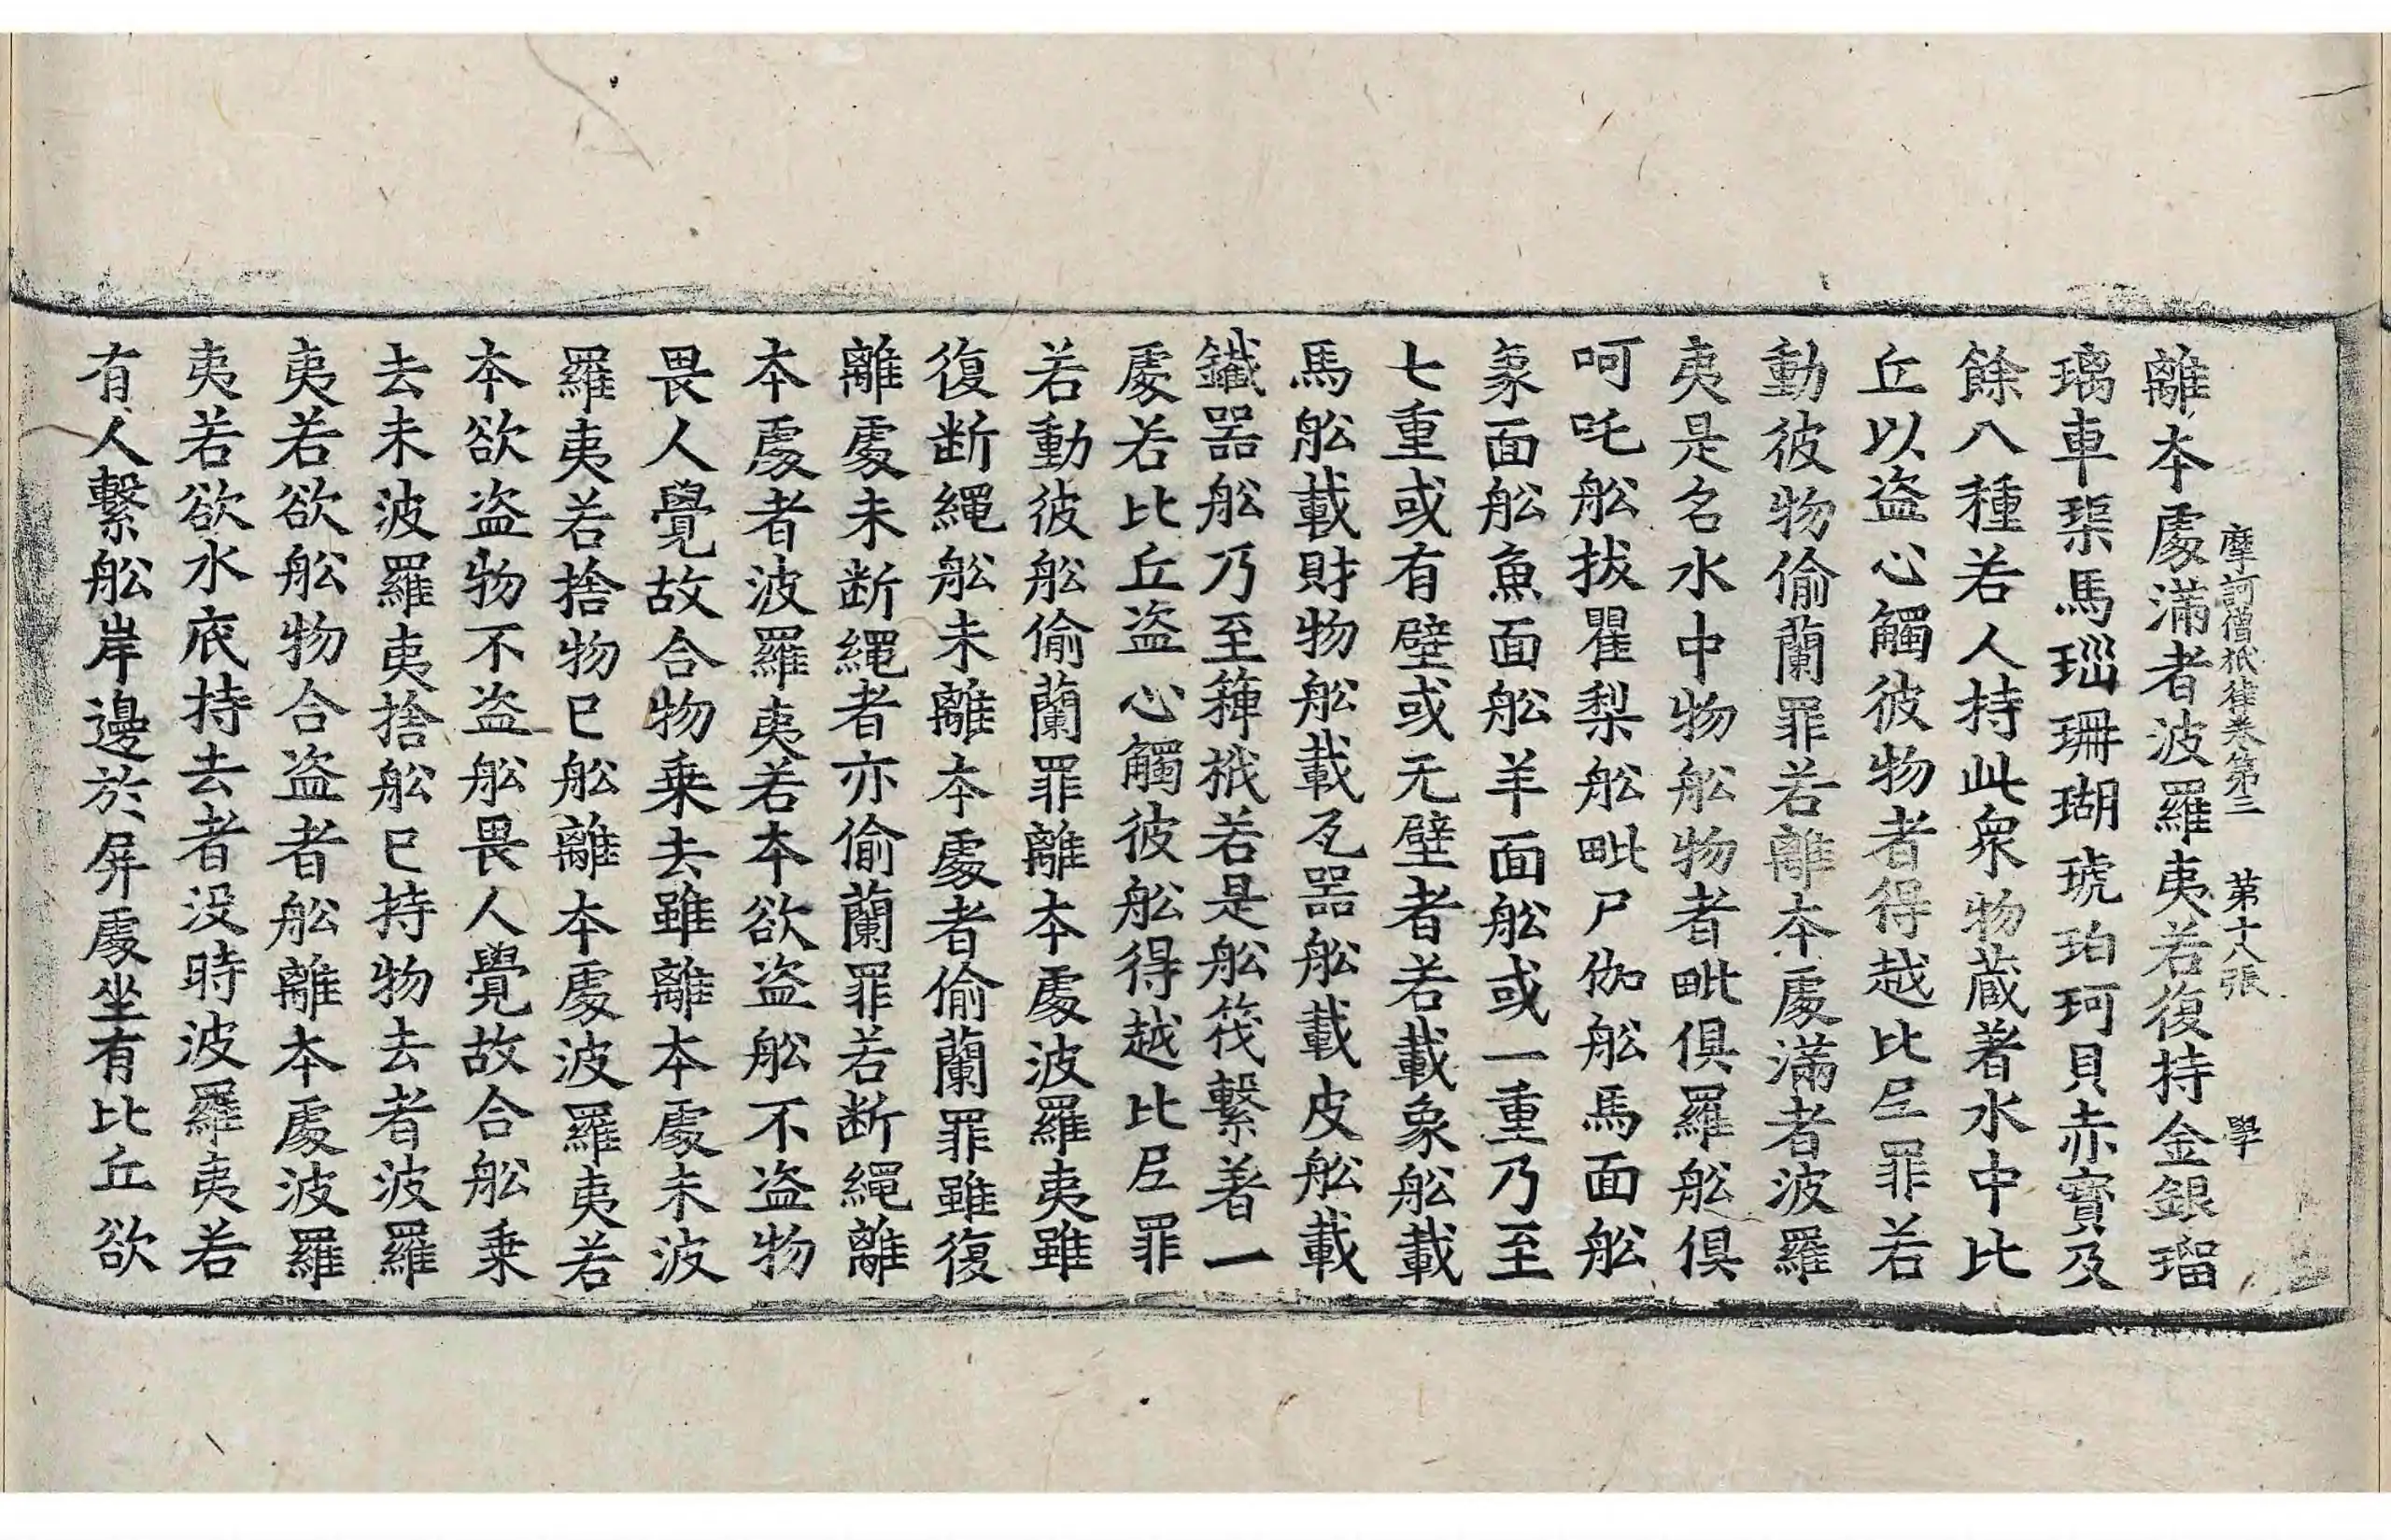 摩訶僧祇律卷第三　第十八張　學
離本處滿者波羅夷若復持金銀瑠
璃車璖馬瑙珊瑚琥珀珂貝赤寶及
餘八種若人持此衆物蔵著水中比
丘以盗心觸彼物者得越比𡰱罪若
動彼物偷蘭罪若離本處滿者波羅
夷是名水中物舩物者毗俱羅舩俱
呵吒舩拔瞿梨舩毗尸伽舩馬面舩
象面舩魚面舩羊面舩或一重乃至
七重或有壁或无壁者若載象舩載
馬舩載財物舩載瓦器舩載皮舩載
鐵器舩乃至箄栰若是舩筏繫著一
處若比丘盗心觸彼舩得越比𡰱罪
若動彼舩偷蘭罪離本處波羅夷雖
復断繩舩未離本處者偷蘭罪雖復
離處未断繩者亦偷蘭罪若断繩離
本處者波羅夷若本欲盗舩不盗物
畏人覺故合物乗去雖離本處未波
羅夷若捨物已舩離本處波羅夷若
本欲盗物不盗舩畏人覺故合舩乗
去未波羅夷捨舩已持物去者波羅
夷若欲舩物合盗者舩離本處波羅
夷若欲水㡳持去者没時波羅夷若
有人繫舩岸邊於屏處坐有比丘欲